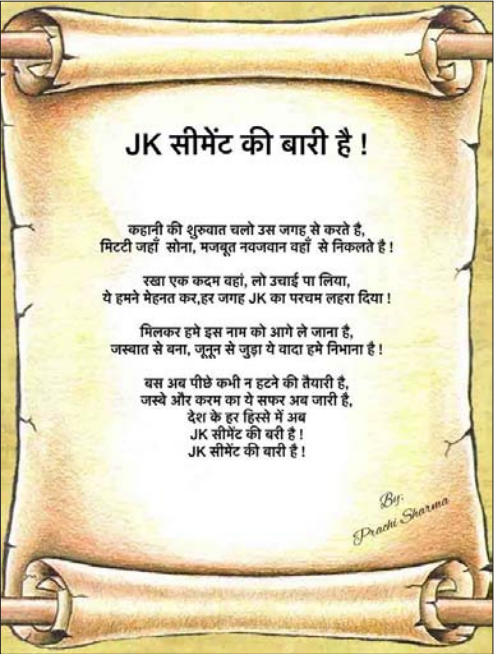 JK सीमेंट की बारी है !
कहानी की शुरुवात चलो उस जगह से करते है,
मिटटी जहाँ सोना, मजबूत नवजवान वहाँ से निकलते है !
रखा एक कदम वहां, लो उचाई पा लिया,
ये हमने मेहनत कर,हर जगह JK का परचम लहरा दिया !
मिलकर हमे इस नाम को आगे ले जाना है,
जस्वात से बना, जूनून से जुड़ा ये वादा हमे निभाना है !
बस अब पीछे कभी न हटने की तैयारी है,
जस्बे और करम का ये सफर अब जारी है,
देश के हर हिस्से में अब
JK सीमेंट की बरी है !
JK सीमेंट की बारी है !
By:
Prachi Sharma